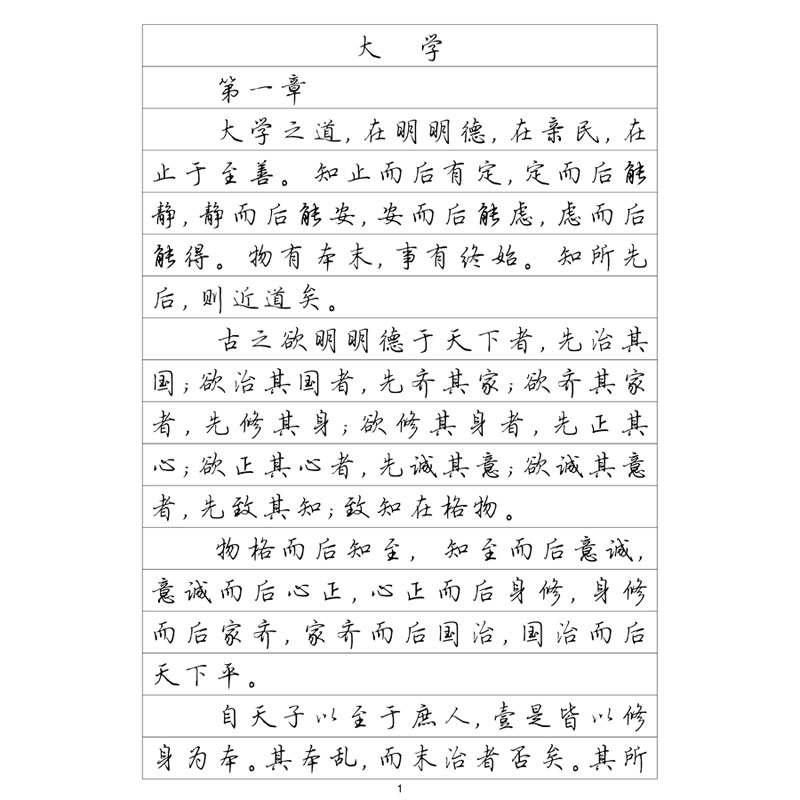 大 学
第一章
大学之道,在明明德,在亲民,在
止于至善。知止而后有定,定而后能
静,静而后能安,安而后能虑,虑而后
能得。物有本末,事有终始。知所先
后,则近道矣。
古之欲明明德于天下者,先治其
国;欲治其国者,先齐其家;欲齐其家
者,先修其身;欲修其身者,先正其
心;欲正其心者,先诚其意;欲诚其意
者,先致其知;致知在格物。
物格而后知至, 知至而后意诚,
意诚而后心正,心正而后身修,身修
而后家齐,家齐而后国治,国治而后
天下平。
自天子以至于庶人,壹是皆以修
身为本。其本乱,而末治者否矣。其所
1